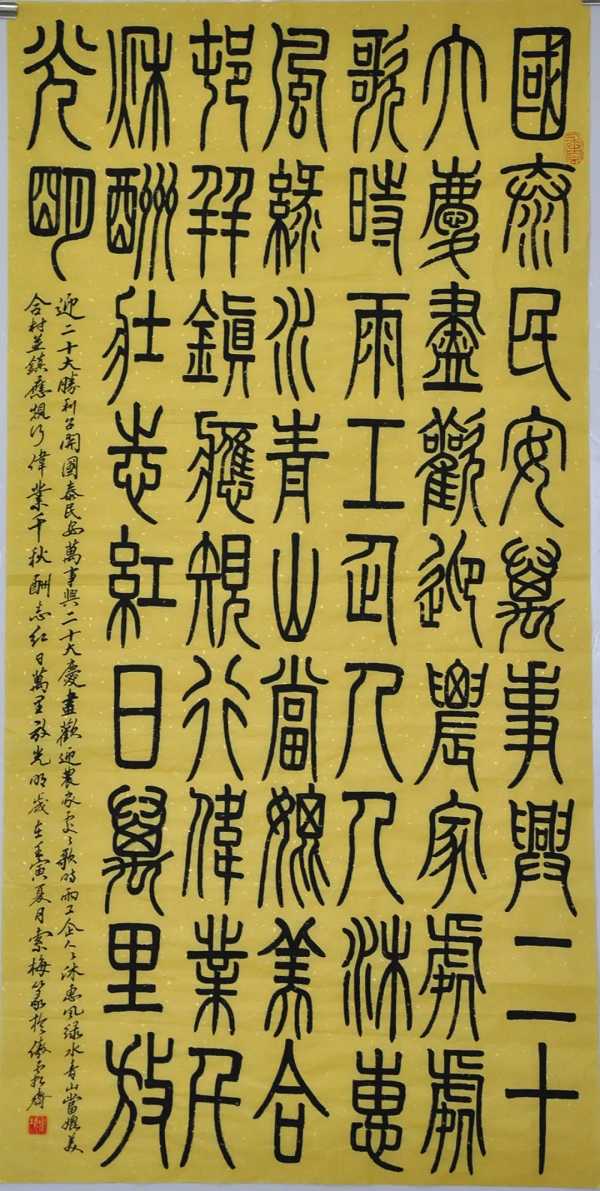 國泰民安萬事興二十
大慶盡歡迎農家處處
歌時雨工企人人沐惠
風綠水青山當媲美合
邨并鎮應規行偉業千
秋酬壯志紅日萬里放
光明
迎二十大勝利召開國泰民安萬事興二十大慶盡歡迎農家處々歌時雨工企人々沐惠風綠水青山當媲美
合村並鎮應規行偉業千秋酬志紅日萬里放光明歲在壬寅夏月索梅篆於傲霜齋